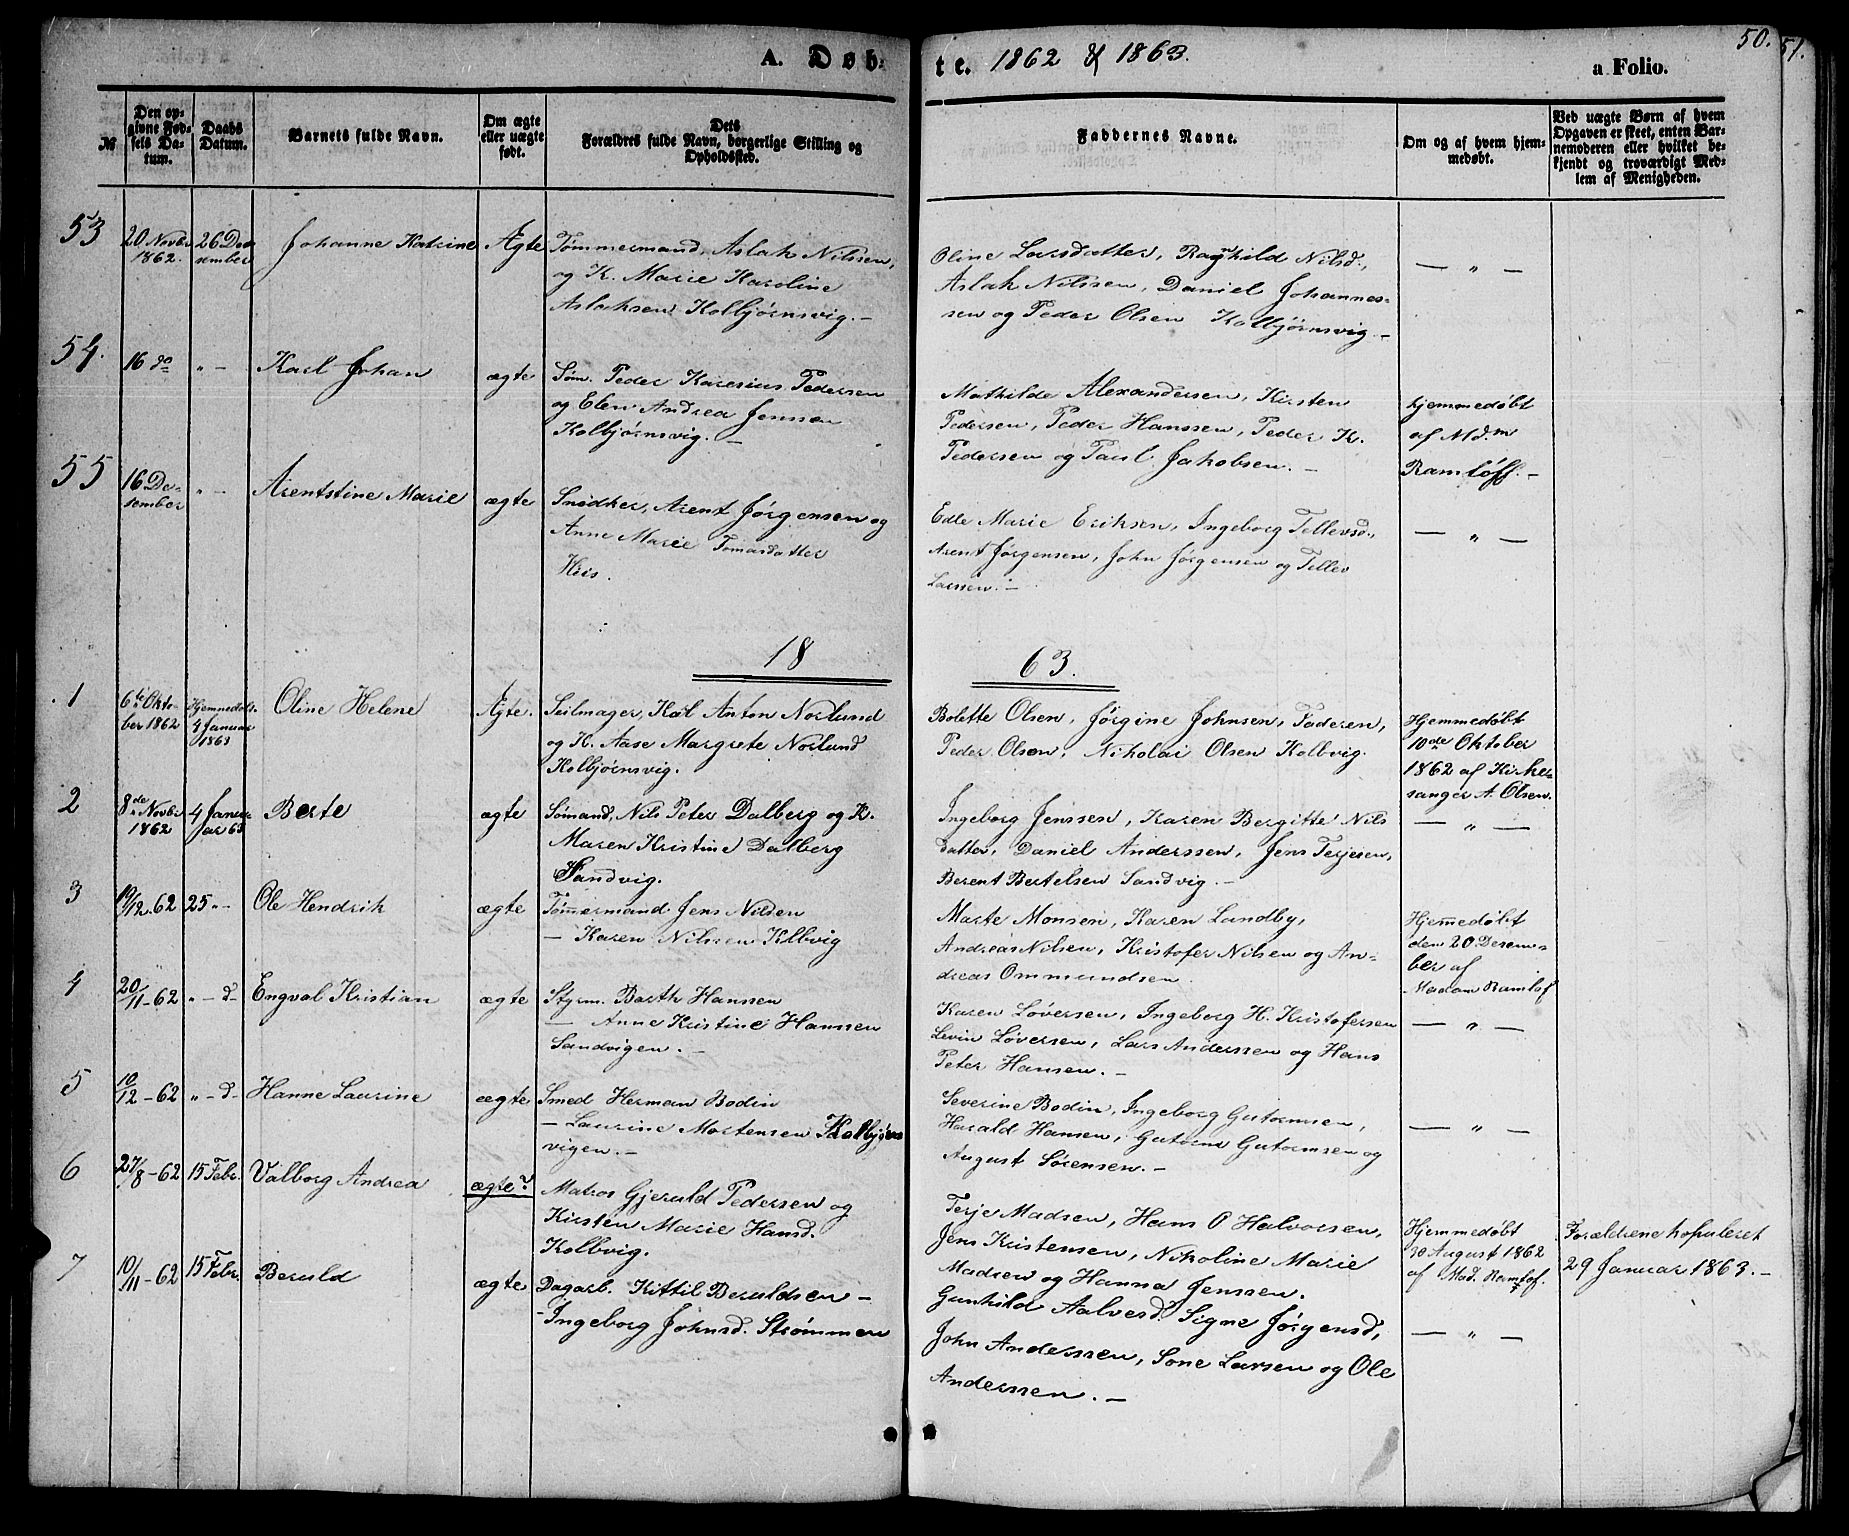 A. Døb-
te. 1862 & 1863.
a Folio.
50.
51.
№
Den op-
givne Fød-
sels Da-
tum.
Daabs
Datum.
Barnets fulde Navn.
Om ægte
eller uægte
født.
Dets
Forældres fulde Navn, borgerlige Stilling og
Opholdssted.
Faddernes Navne.
Om og af hvem hjem-
medøbt.
Ved uægte Børn af hvem
Opgaven er skeet, enten Bar-
nemoderen eller hvilket be-
kjendt og troværdigt Med-
lem af Menigheden.
53
20 Novbr
1862.
26 De-
sember
Johanne Katrine
Ægte
Tømmermand, Aslak Nilssen,
og K. Marie Karoline
Aslaksen Kolbjørnsvig. —
Oline Larsdatter, Ragnhild Nilsd.,
Aslak Nilssen, Daniel Johannes-
sen og Peder Olsen Kolbjørnsvig —
— " —
54.
16 do
" —
Karl Johan
ægte
Søm. Peder Karesius Pedersen
og Elen Andrea Jenssen
Kolbjørnsvig. —
Mathilde Alexandersen, Kirsten
Pedersen, Peder Hanssen, Peder K.
Pedersen og Paul Jakobsen. —
hjemmedøbt
af Mdm
Ramløff. —
55
16 De-
sember
" —
Arentstine Marie
ægte
Snedker, Arent Jørgensen og
Anne Marie Tomasdatter
His.
Edle Marie Eriksen, Ingeborg Tellevsd.,
Arent Jørgensen, John Jørgensen og Tellev
Larssen. —
— " —
18 63.
1
6te Okto-
ber 1862
Hjemmedøbt
4 Januar
1863
Oline Helene
Ægte.
Seilmager, Karl Anton Norlund
og K. Aase Margrete Norlund
Kolbjørnsvig.
Bolette Olsen, Jørgine Johnsen, Faderen,
Peder Olsen, Nikolai Olsen Kolbvig.
Hjemmedøbt
10de Oktober
1862 af Kirke-
sanger A. Olsen.
2
8de Novbr
1862
4 Janu-
ar 63
Berte
ægte
Sømand, Nils Peter Dalberg og K.
Maren Kristine Dalberg
Sandvig.
Ingeborg Jenssen, Karen Bergitte Nils
datter, Daniel Anderssen, Jens Terjesen,
Berent Bertelsen Sandvig. —
— " —
3
19/12 62
25 " —
Ole Hendrik
ægte
Tømmermand Jens Nilsen
— Karen Nilssen Kolbvig
Marte Monsen, Karen Lundby,
Andreas Nilsen, Kristofer Nilsen og An-
dreas Ommundsen.
Hjemmedøbt
den 20. Desem-
ber af
Madam Ramløf
4
20/11 - 62
" — d —
Engval Kristian
ægte
Styrm. Barth Hansen
— Anne Kristine Hanssen
Sandvigen. —
Karen Løversen, Ingeborg H. Kristofersen
Levin Løversen, Lars Anderssen og Hans
Peter Hansen. —
— " —
5
10/12 - 62
" — d —
Hanne Laurine
ægte
Smed Herman Bodin
— Laurine Mortensen Kolbjørns
vigen. —
Severine Bodin, Ingeborg Gutormsen,
Harald Hansen, Gutorm Gutormsen og
August Sørensen. —
— " —
6
27/8 - 62
15 Febr.
Valborg Andrea
ægte?
Matros Gjeruld Pedersen og
Kirsten Marie Hansd.
Kolbvig.
Terje Madsen, Hans O Halvorsen,
Jens Kristensen, Nikoline Marie
Madsen og Hanna Jenssen.
Hjemmedøbt
30 August 1862
af Mad. Ramløf.
Forældrene kopuleret
29 Januar 1863. —
7
10/11 - 62
15 Febr.
Beruld
ægte
Dagarb. Kittil Beruldsen —
- Ingeborg Johnsd. Strømmen
Gunhild Aalvesd. Signe Jørgensd,
John Anderssen, Sone Larsen og Ole
Anderssen. —
— " —